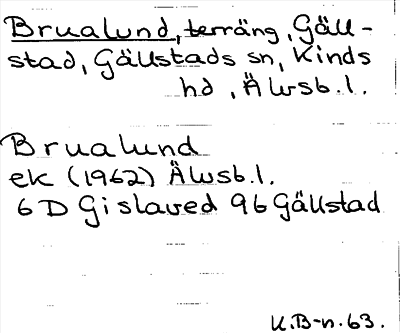 Brualund, terräng, Gäll-
stad, Gällstads sn, Kinds
hd, Älvsb.l.
Brualund
ek (1962) Älvsb.l.
6D Gislaved 9b Gällstad
K.B-n.63.